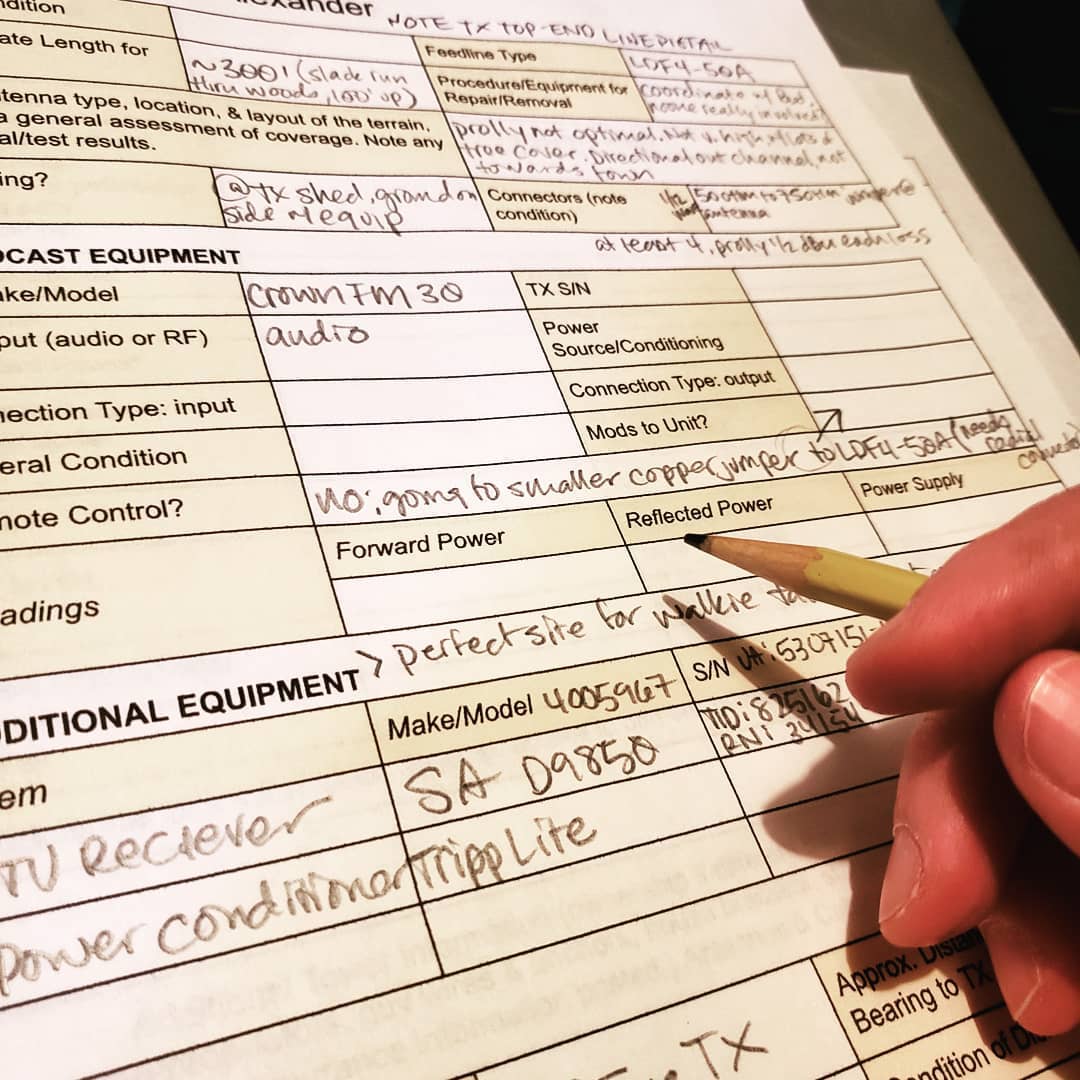 ndition
exander
NOTE TX TOP-END LINE PIGTAIL
ate Length for
~300' (slade run
thru woods, 100' up)
Feedline Type
LDF4-50A
Procedure/Equipment for
Repair/Removal
coordinate w/ Bud,
noone really involved?
tenna type, location, & layout of the terrain,
a general assessment of coverage. Note any
al/test results.
prolly not optimal. Not v. high, + lots of
tree cover. Directional out channel, not
towards town
ing?
@ tx shed, ground on
side of equip
Connectors (note
condition)
1/2 50ohm to 75ohm @
antenna
at least 4, prolly 1/2 dBu each loss
DCAST EQUIPMENT
ake/Model
Crown FM 30
TX S/N
put (audio or RF)
audio
Power
Source/Conditioning
nection Type: input
Connection Type: output
eral Condition
Mods to Unit?
mote Control?
no; going to smaller copper jumper to LDF4-50A (needs
Forward Power
Reflected Power
Power Supply
adings
> perfect site for walkie
DDITIONAL EQUIPMENT
em
Make/Model 4005967
S/N UA: 5307151
TU Reciever
SA D9850
TID: 825162
RN: 34154
power conditioner
Tripp Lite
Approx. Distan
Bearing to TX
TX
ondition of Di